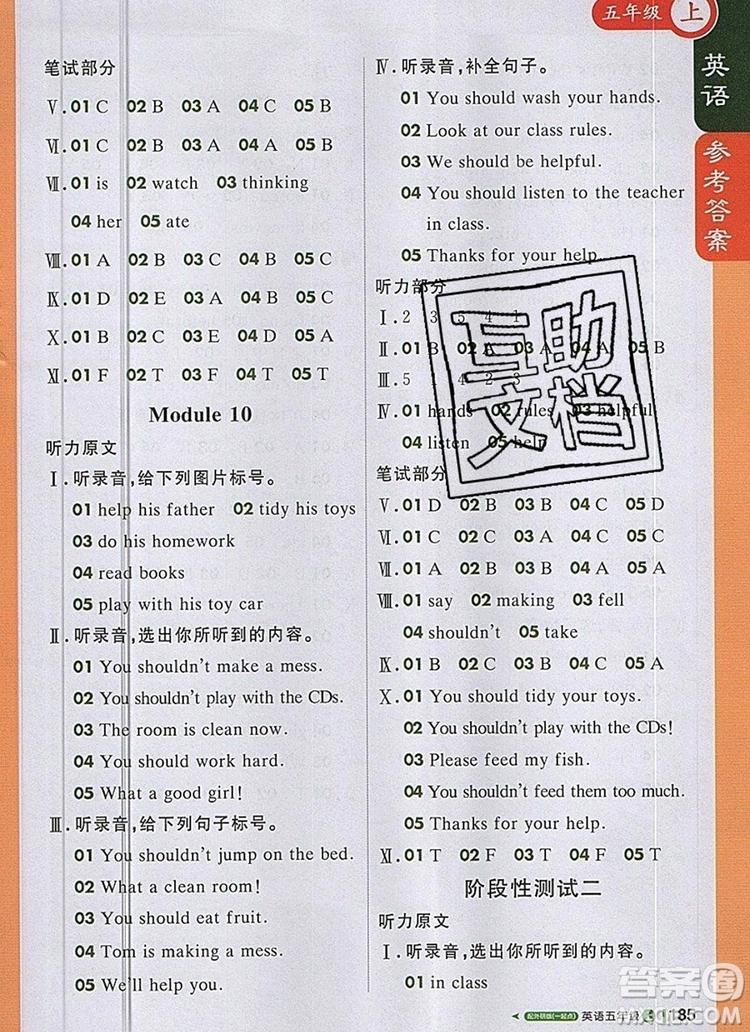 五年级 上
英语
参考答案
笔试部分
Ⅴ. 01 C 02 B 03 A 04 C 05 B
Ⅵ. 01 C 02 B 03 A 04 C 05 B
Ⅶ. 01 is 02 watch 03 thinking
04 her 05 ate
Ⅷ. 01 A 02 B 03 C 04 B 05 B
Ⅸ. 01 D 02 E 03 A 04 B 05 C
Ⅹ. 01 B 02 C 03 E 04 D 05 A
Ⅺ. 01 F 02 T 03 F 04 F 05 T
Module 10
听力原文
Ⅰ. 听录音,给下列图片标号。
01 help his father 02 tidy his toys
03 do his homework
04 read books
05 play with his toy car
Ⅱ. 听录音,选出你所听到的内容。
01 You shouldn't make a mess.
02 You shouldn't play with the CDs.
03 The room is clean now.
04 You should work hard.
05 What a good girl!
Ⅲ. 听录音,给下列句子标号。
01 You shouldn't jump on the bed.
02 What a clean room!
03 You should eat fruit.
04 Tom is making a mess.
05 We'll help you.
Ⅳ. 听录音,补全句子。
01 You should wash your hands.
02 Look at our class rules.
03 We should be helpful.
04 You should listen to the teacher
in class.
05 Thanks for your help.
听力部分
Ⅰ. 2 3 5 4 1
Ⅱ. 01 B 02 A 03 A 04 B 05
Ⅲ. 5 1 4 2 3
Ⅳ. 01 hands 02 rules 03 helpful
04 listen 05 help
笔试部分
Ⅴ. 01 D 02 B 03 B 04 C 05 D
Ⅵ. 01 C 02 A 03 B 04 C 05 D
Ⅶ. 01 A 02 B 03 A 04 B 05 A
Ⅷ. 01 say 02 making 03 fell
04 shouldn't 05 take
Ⅸ. 01 B 02 B 03 C 04 C 05 A
Ⅹ. 01 You should tidy your toys.
02 You shouldn't play with the CDs!
03 Please feed my fish.
04 You shouldn't feed them too much.
05 Thanks for your help.
Ⅺ. 01 T 02 F 03 F 04 T 05 T
阶段性测试二
听力原文
Ⅰ. 听录音,选出你所听到的内容。
01 in class
配外研版(一起点) 英语五年级 上 185
互助
文档
答案圈